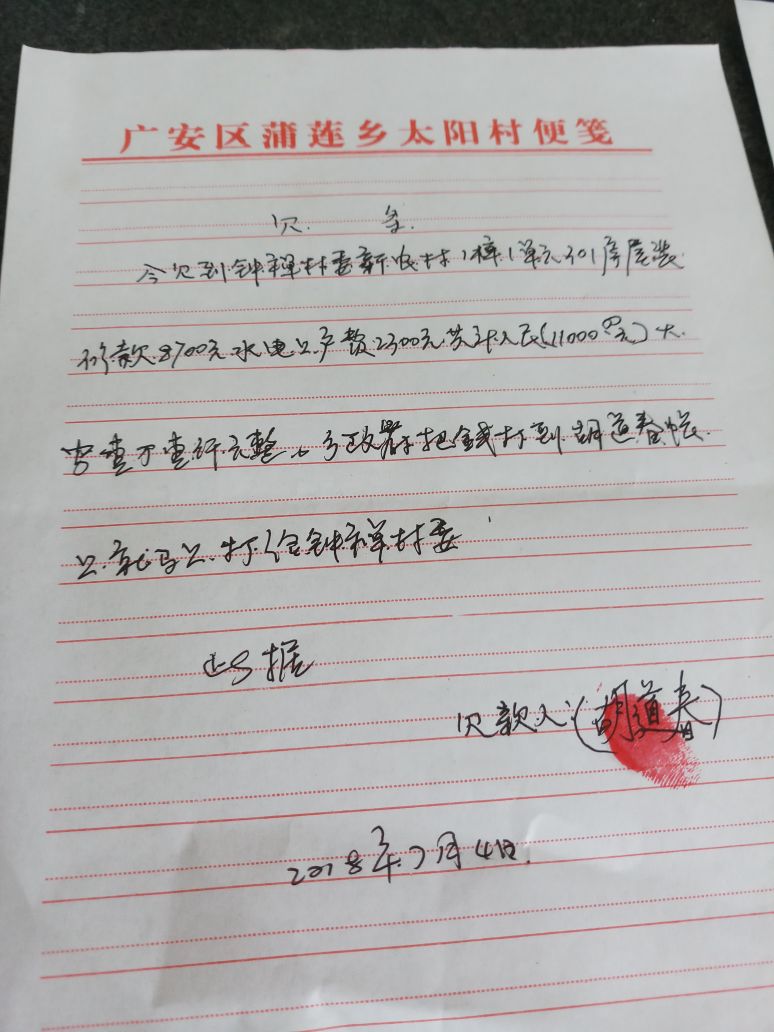 广安区蒲莲乡太阳村便笺
欠 条
今欠到钟禅林委新农村1幢1单元301房屋装
修款8700元水电上户款2300元共计人民(11000元)大
写壹万壹仟元整。等政府把钱打到胡道春帐
上就马上打给钟禅林委
此据
欠款人:(胡道春)
2018年7月4日.